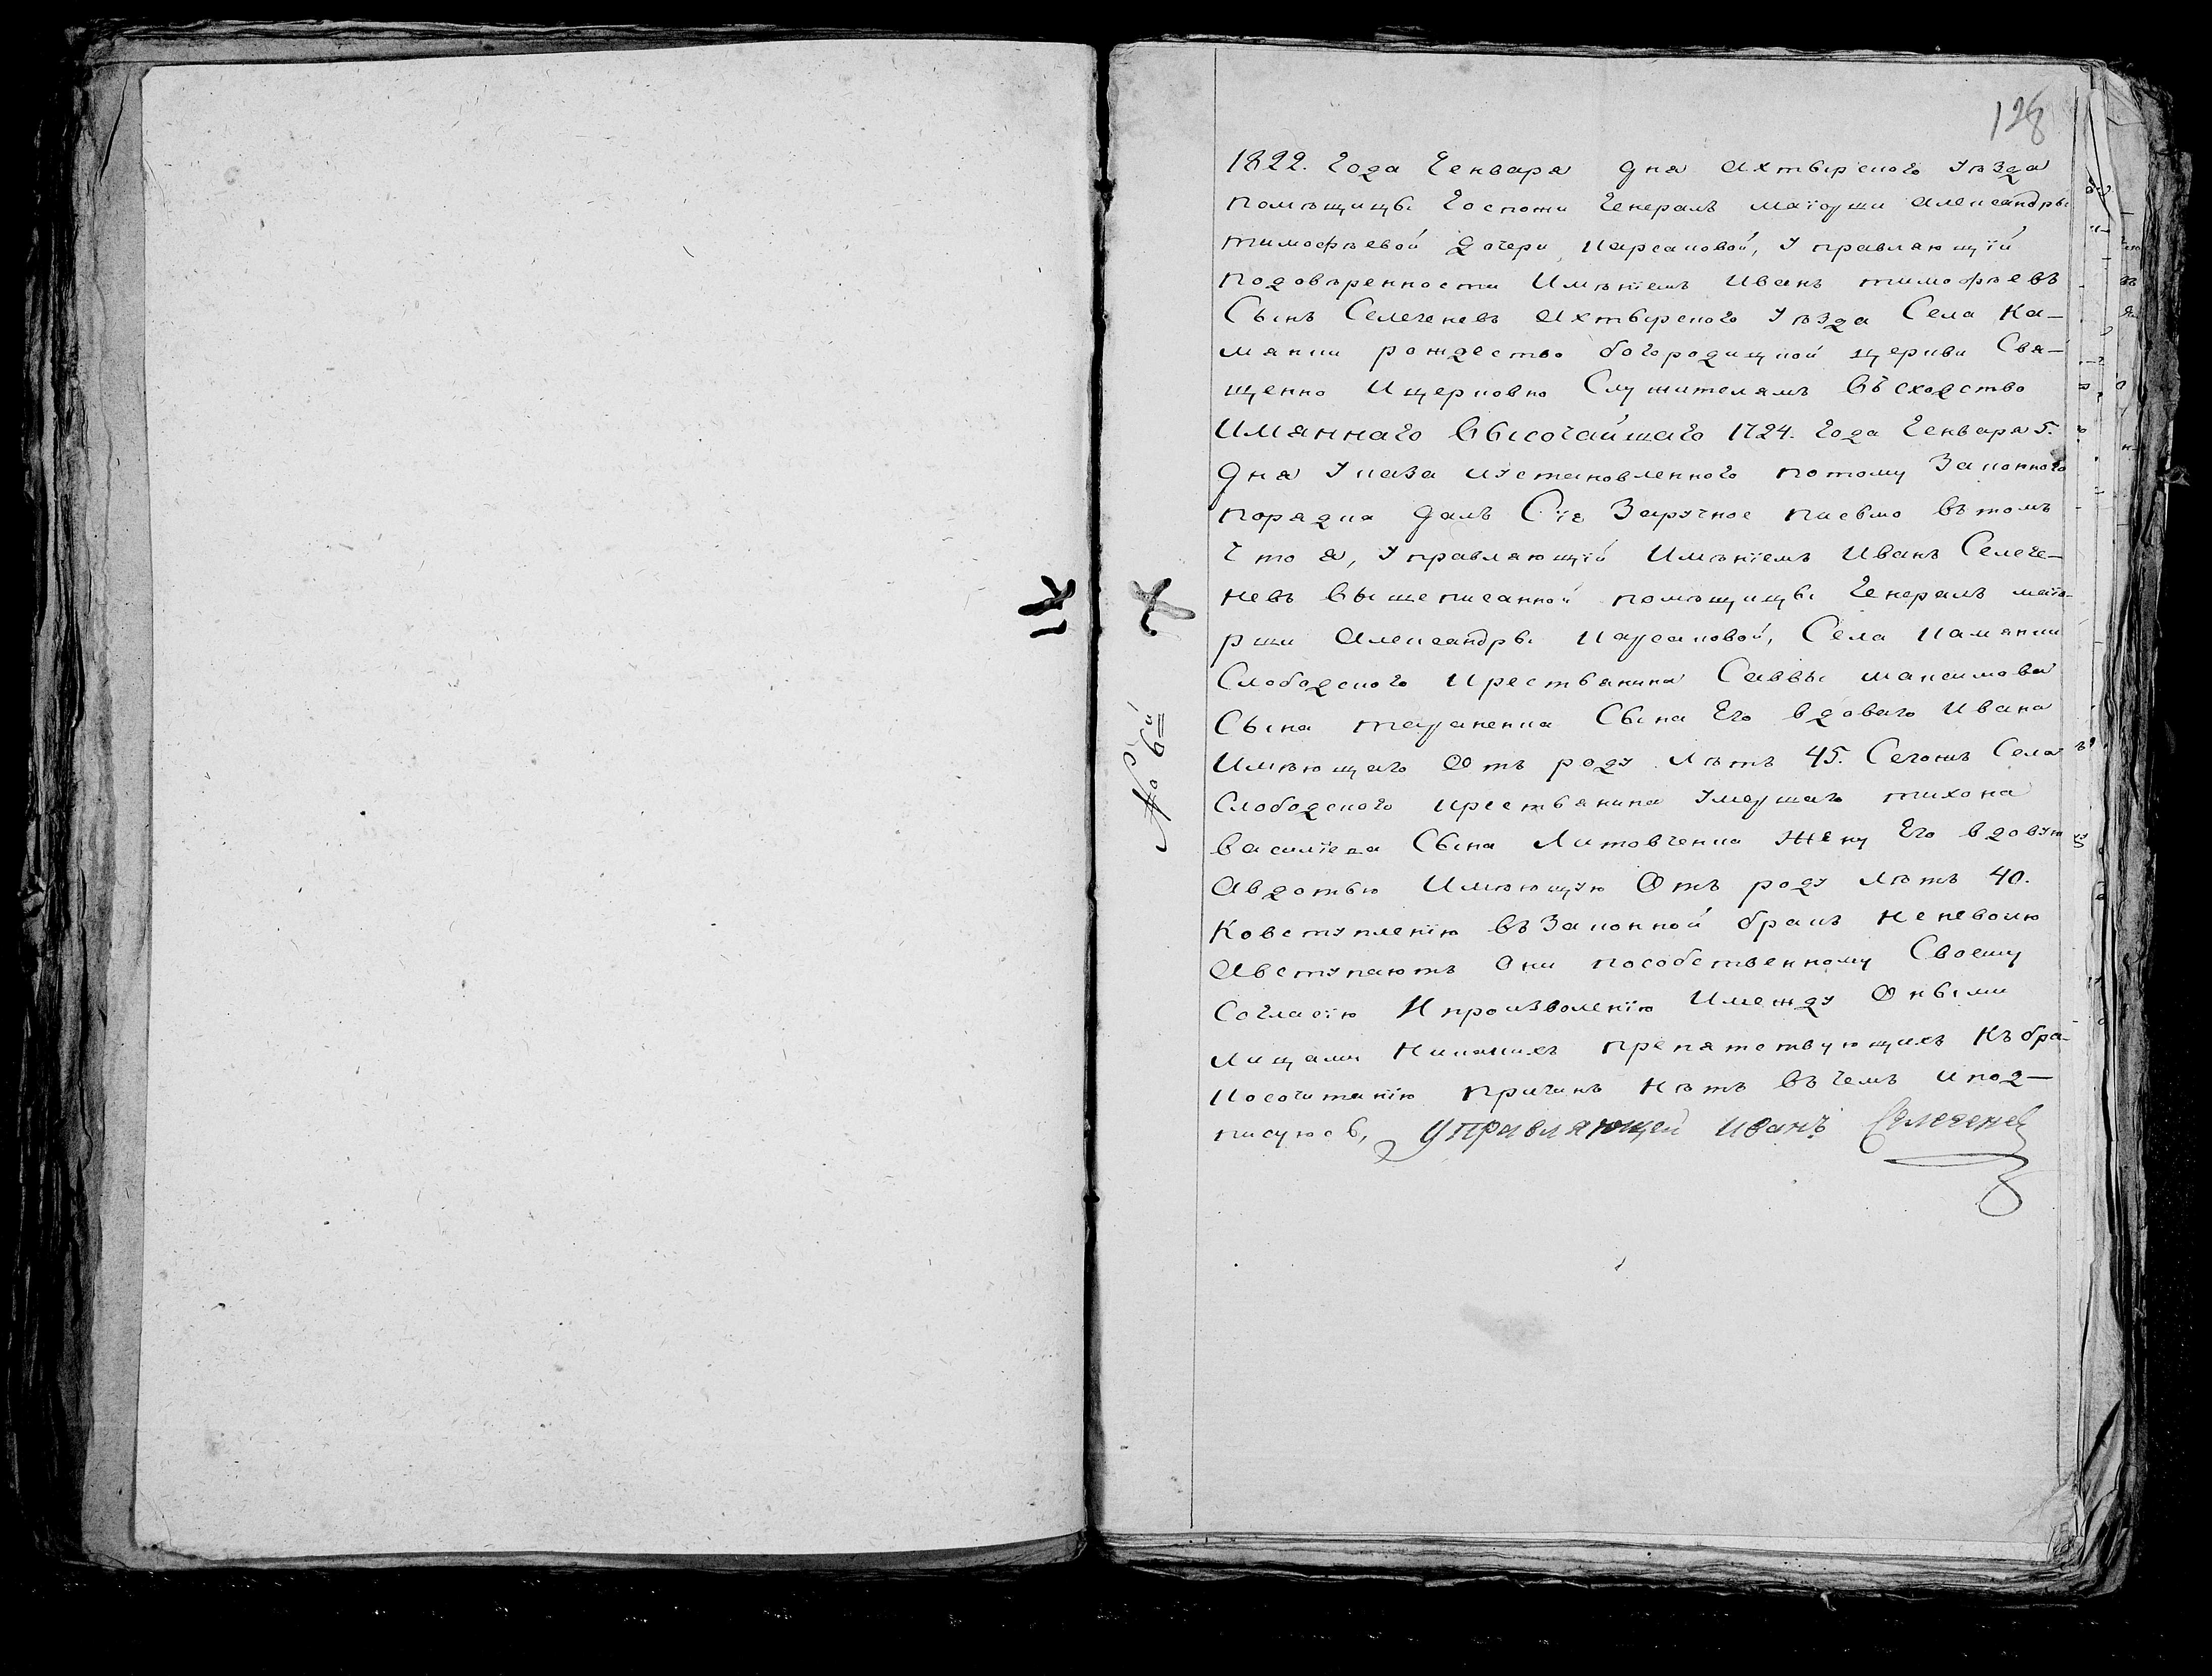 128
1822. Года Генваря дня Ахтырского Уѣзда
помѣщицы Госпожи Генералъ маіорши Александры
тимофѣевой дочери Карсаковой, Управляющій
подовѣренности Имѣніемъ Иванъ тимофѣевъ
Сынъ Селегеневъ Ахтырского Уѣзда Села Ка-
мянки рождество богородицкой церкви Свя-
щенно Ицерковно Служителямъ Въсходство
Имяннаго Высочайшаго 1724. Года Генваря 5.
дня Указа иустановленного потому Законного
порядка далъ Сіе Заручное писвмо въ томъ
Что я, Управляющій Имѣніемъ Иванъ Селеге-
невъ вышеписанной помѣщицы Генералъ маіо-
рши Александры Карсаковой, Села Камянки
Слободского крествянина Саввы максимова
Сына тараненка Сына Его вдоваго Ивана
Имѣющаго Отъ роду лѣтъ 45. Сегожъ Села
Слободского крествянина Умершаго тихона
василіева Сына Литовченка Жену Его вдовую
Авдотью Имѣющую Отъ роду лѣтъ 40.
Ковступленію въ Законной бракъ Неневолю
Авступаютъ Они пособственному Своему
Согласію Ипроизволенію Имежду Оными
лицами Никакихъ препятствующихъ Къ бра-
косочитанію причинъ Нѣтъ въ чемъ ипод-
писуюсь, Управляющей Иванъ Селегенев
№ 6й